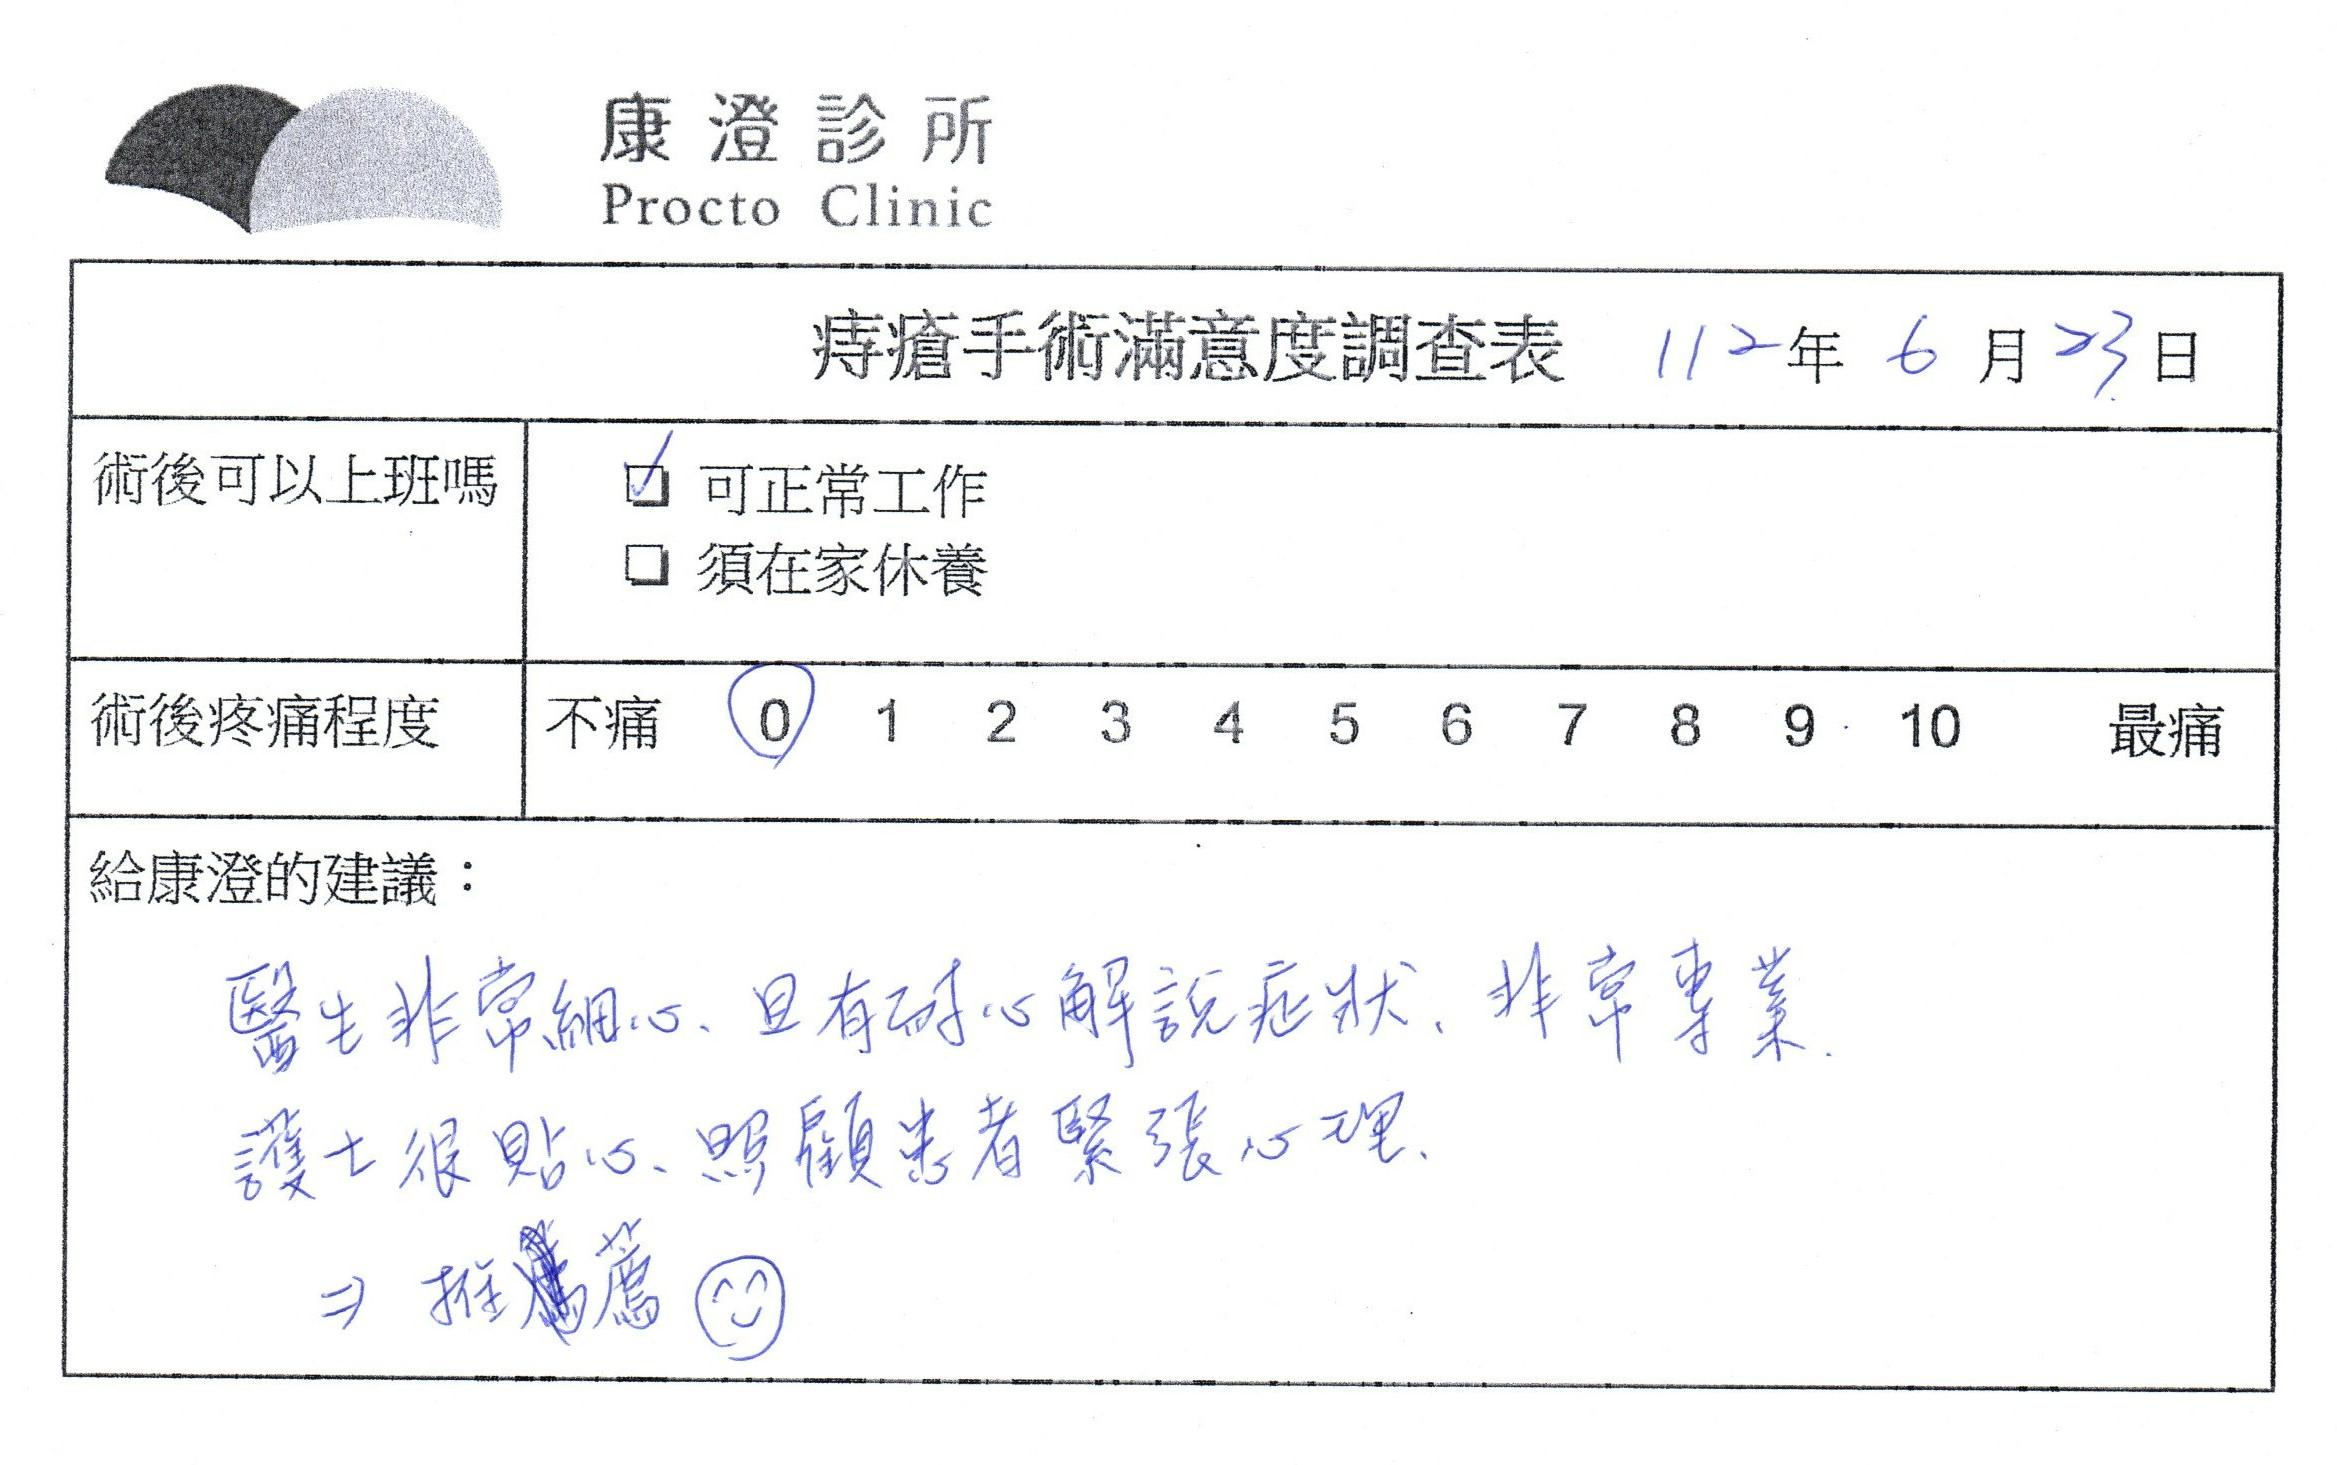 康澄診所
Procto Clinic
痔瘡手術滿意度調查表 112年 6月 23日
術後可以上班嗎
☑ 可正常工作
☐ 須在家休養
術後疼痛程度 不痛 0 1 2 3 4 5 6 7 8 9 10 最痛
給康澄的建議：
醫生非常細心、且有耐心解說症狀、非常專業.
護士很貼心、照顧患者緊張心理、
⇒ 推薦